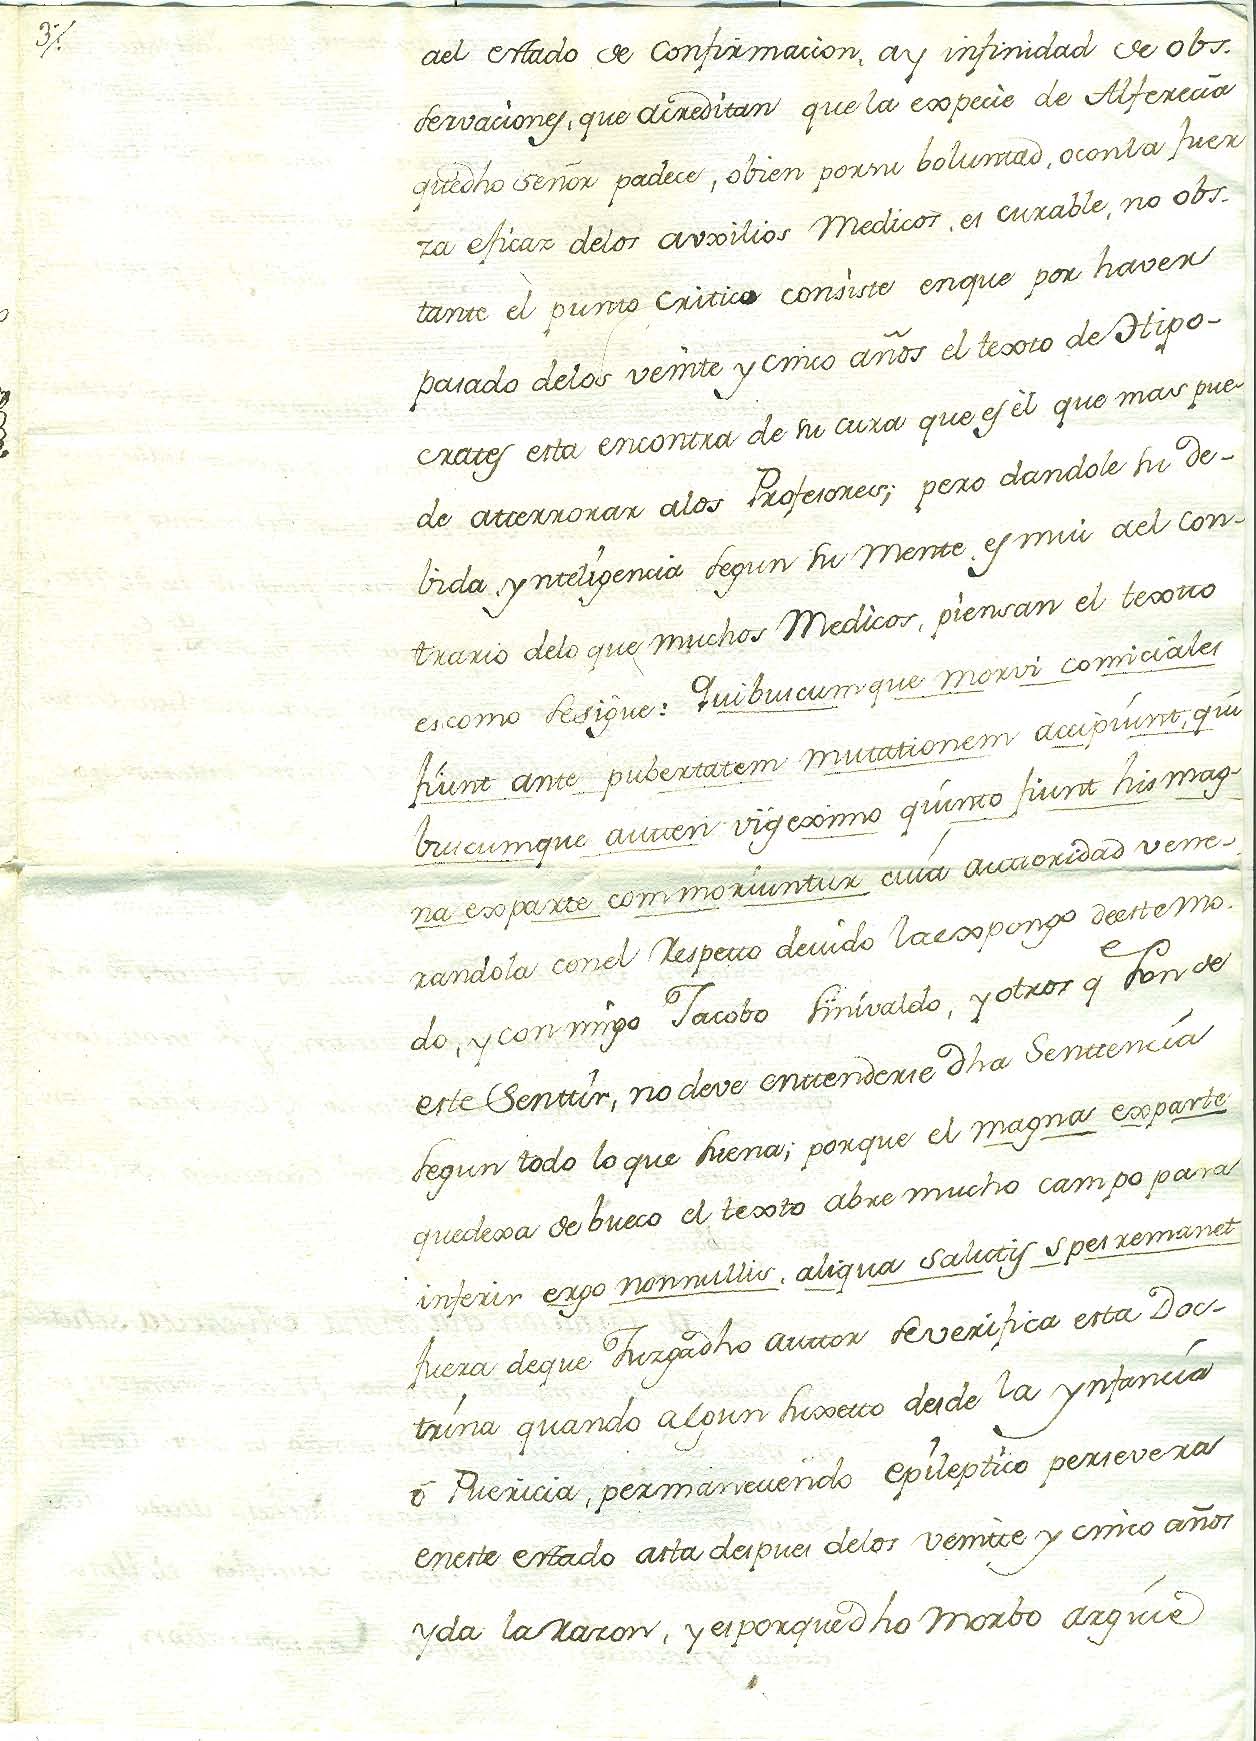 3/.
ael estado de Confirmacion, ay infinidad de obs-
servaciones, que acreditan que la expecie de Alferecia
quedho señor padece, obien porsu boluntad, oconla fuer
za eficaz delos auxilios Medicos, es curable, no obs-
tante èl punto Critico consiste enque por haver
pasado delos veinte y cinco años el texto de Hipo-
crates esta encontra de su cura que es èl que mas pue
de atterrorar alos Profesores; pero dandole su de-
bida ynteligencia segun su Mente es mui ael con-
trario delo que muchos Medicos, piensan el textto
escomo sesigue: Quibuscumque morvi comiciales
fiunt ante pubertatem mutationem accipiunt, qui
buscumque autten vigeximo quinto fiunt his mag-
na exparte commoriuntur cuia auttoridad vene-
randola conel Respetto devido laexpongo deeste mo-
do, y conmigo Jacobo Sinivaldo, y otros qe son de
este Senttir, no deve enttenderse dha Senttencia
segun todo lo que suena; porque el magna exparte
quedexa de bueco el texto abre mucho campo para
inferir ergo nonnullis, aliqua salutis spes remanet
fuera deque Juzga dho auttor severifica esta Doc-
trina quando algun suxetto desde la ynfancia
ô Puericia, permaneciendo epileptico persevera
eneste estado asta despues delos veintte y cinco años
yda la razon, y esporque dho Morbo arguie